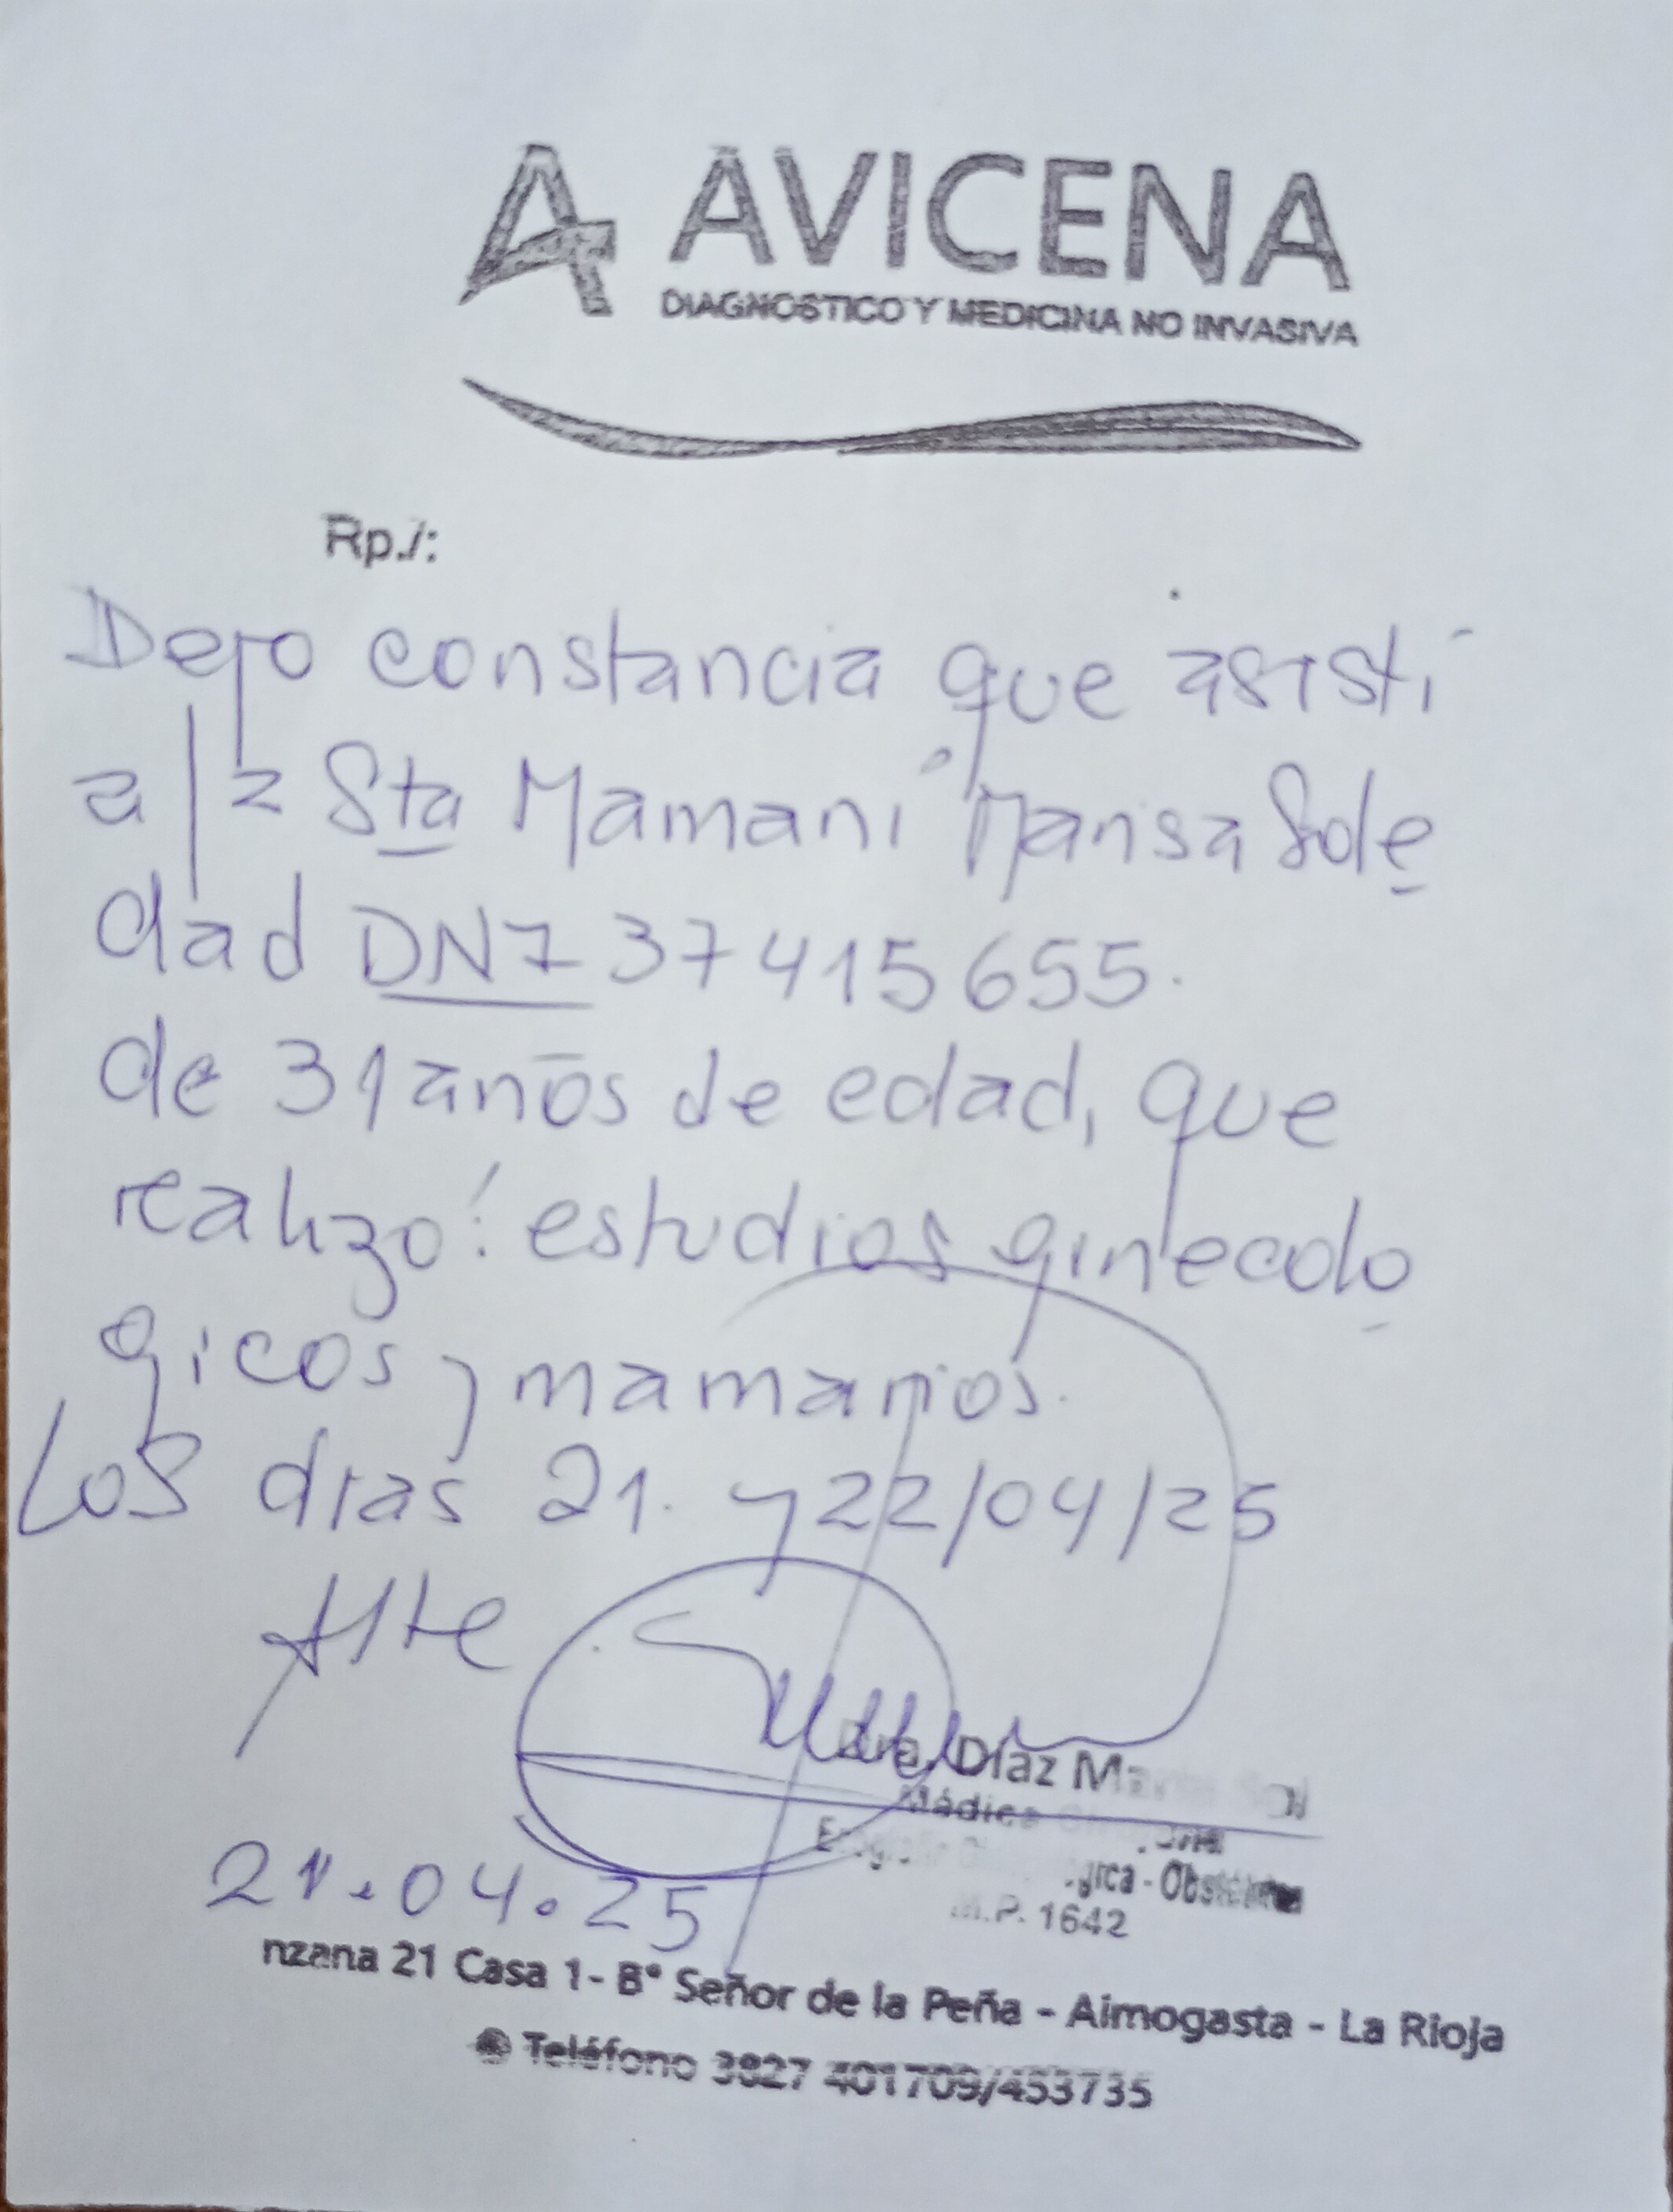 AVICENA
DIAGNOSTICO Y MEDICINA NO INVASIVA
Rp./:
Dejo constancia que asistí
a la Sta Mamaní Marisa Sole
dad DNI 37415655.
de 31 años de edad, que
realizó: estudios ginecoló
gicos y mamarios.
Los días 21. y 22/04/25
Atte
Dra. Díaz María Sol
Médica
Ecografía Ginecológica - Obstétrica
M.P. 1642
21.04.25
nzana 21 Casa 1- B° Señor de la Peña - Aimogasta - La Rioja
Teléfono 3827 401709/453735